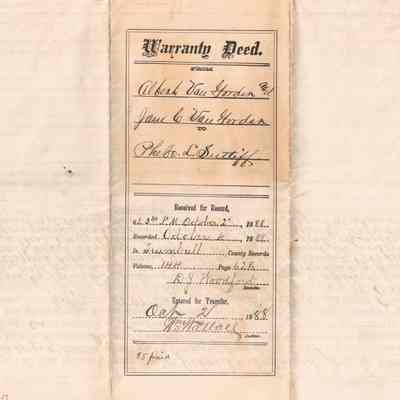 Warranty Deed.
Albert Van Gorden &
Jane C. Van Gorden
TO
Phebe L. Sutliff
Received for Record,
at 3 P.M. October 2 1888
Recorded October 1888
In Trumbull County Records
Volume, 144 Page
R. J. Woodford
Recorder
Entered for Transfer,
Oct 2 1888
Wm Wallace
Auditor